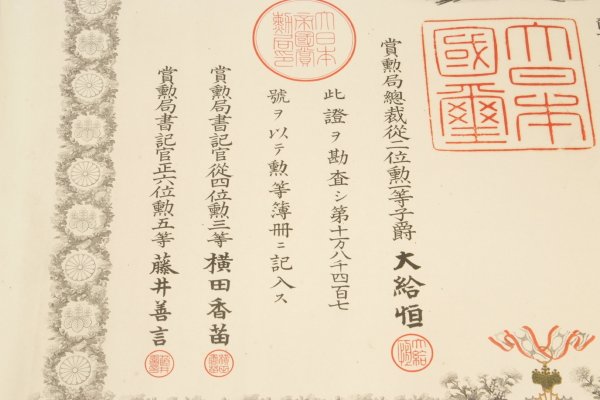 大日本國璽
賞勲局總裁從二位勲一等子爵 大給恒
此證ヲ勘査シ第十万八千四百七
號ヲ以テ勲等簿冊ニ記入ス
大日本帝國賞勲局印
賞勲局書記官從四位勲三等 橫田香苗
賞勲局書記官正六位勲五等 藤井善言